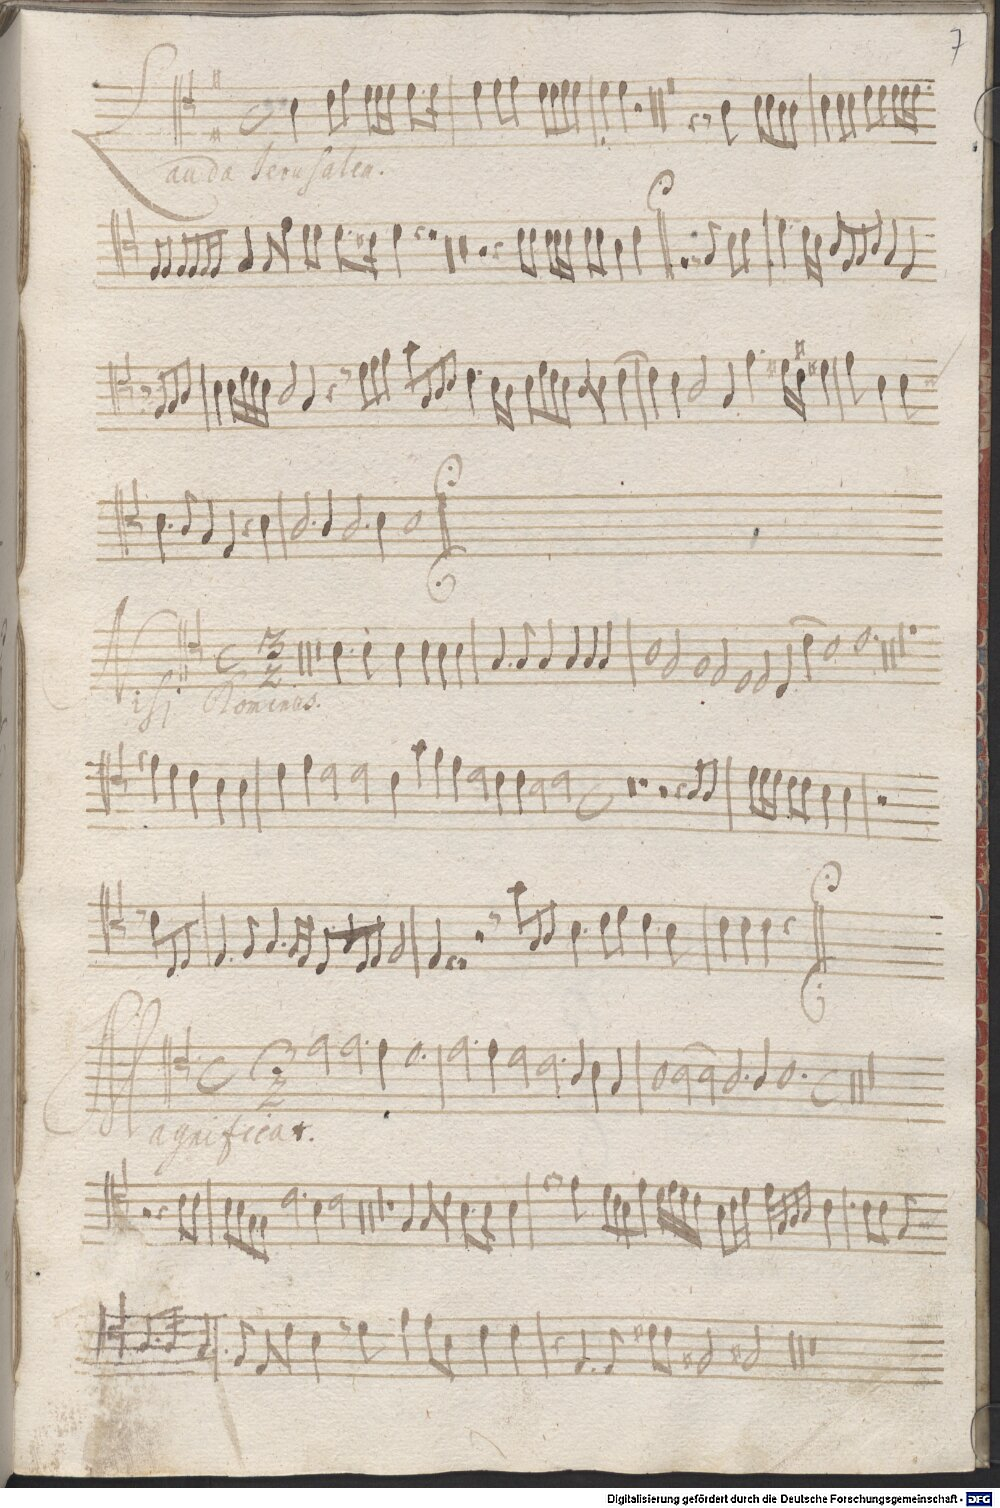 7
Lauda Jerusalem.
Nisi Dominus.
3
2
Magnificat.
3
2
Digitalisierung gefördert durch die Deutsche Forschungsgemeinschaft - DFG